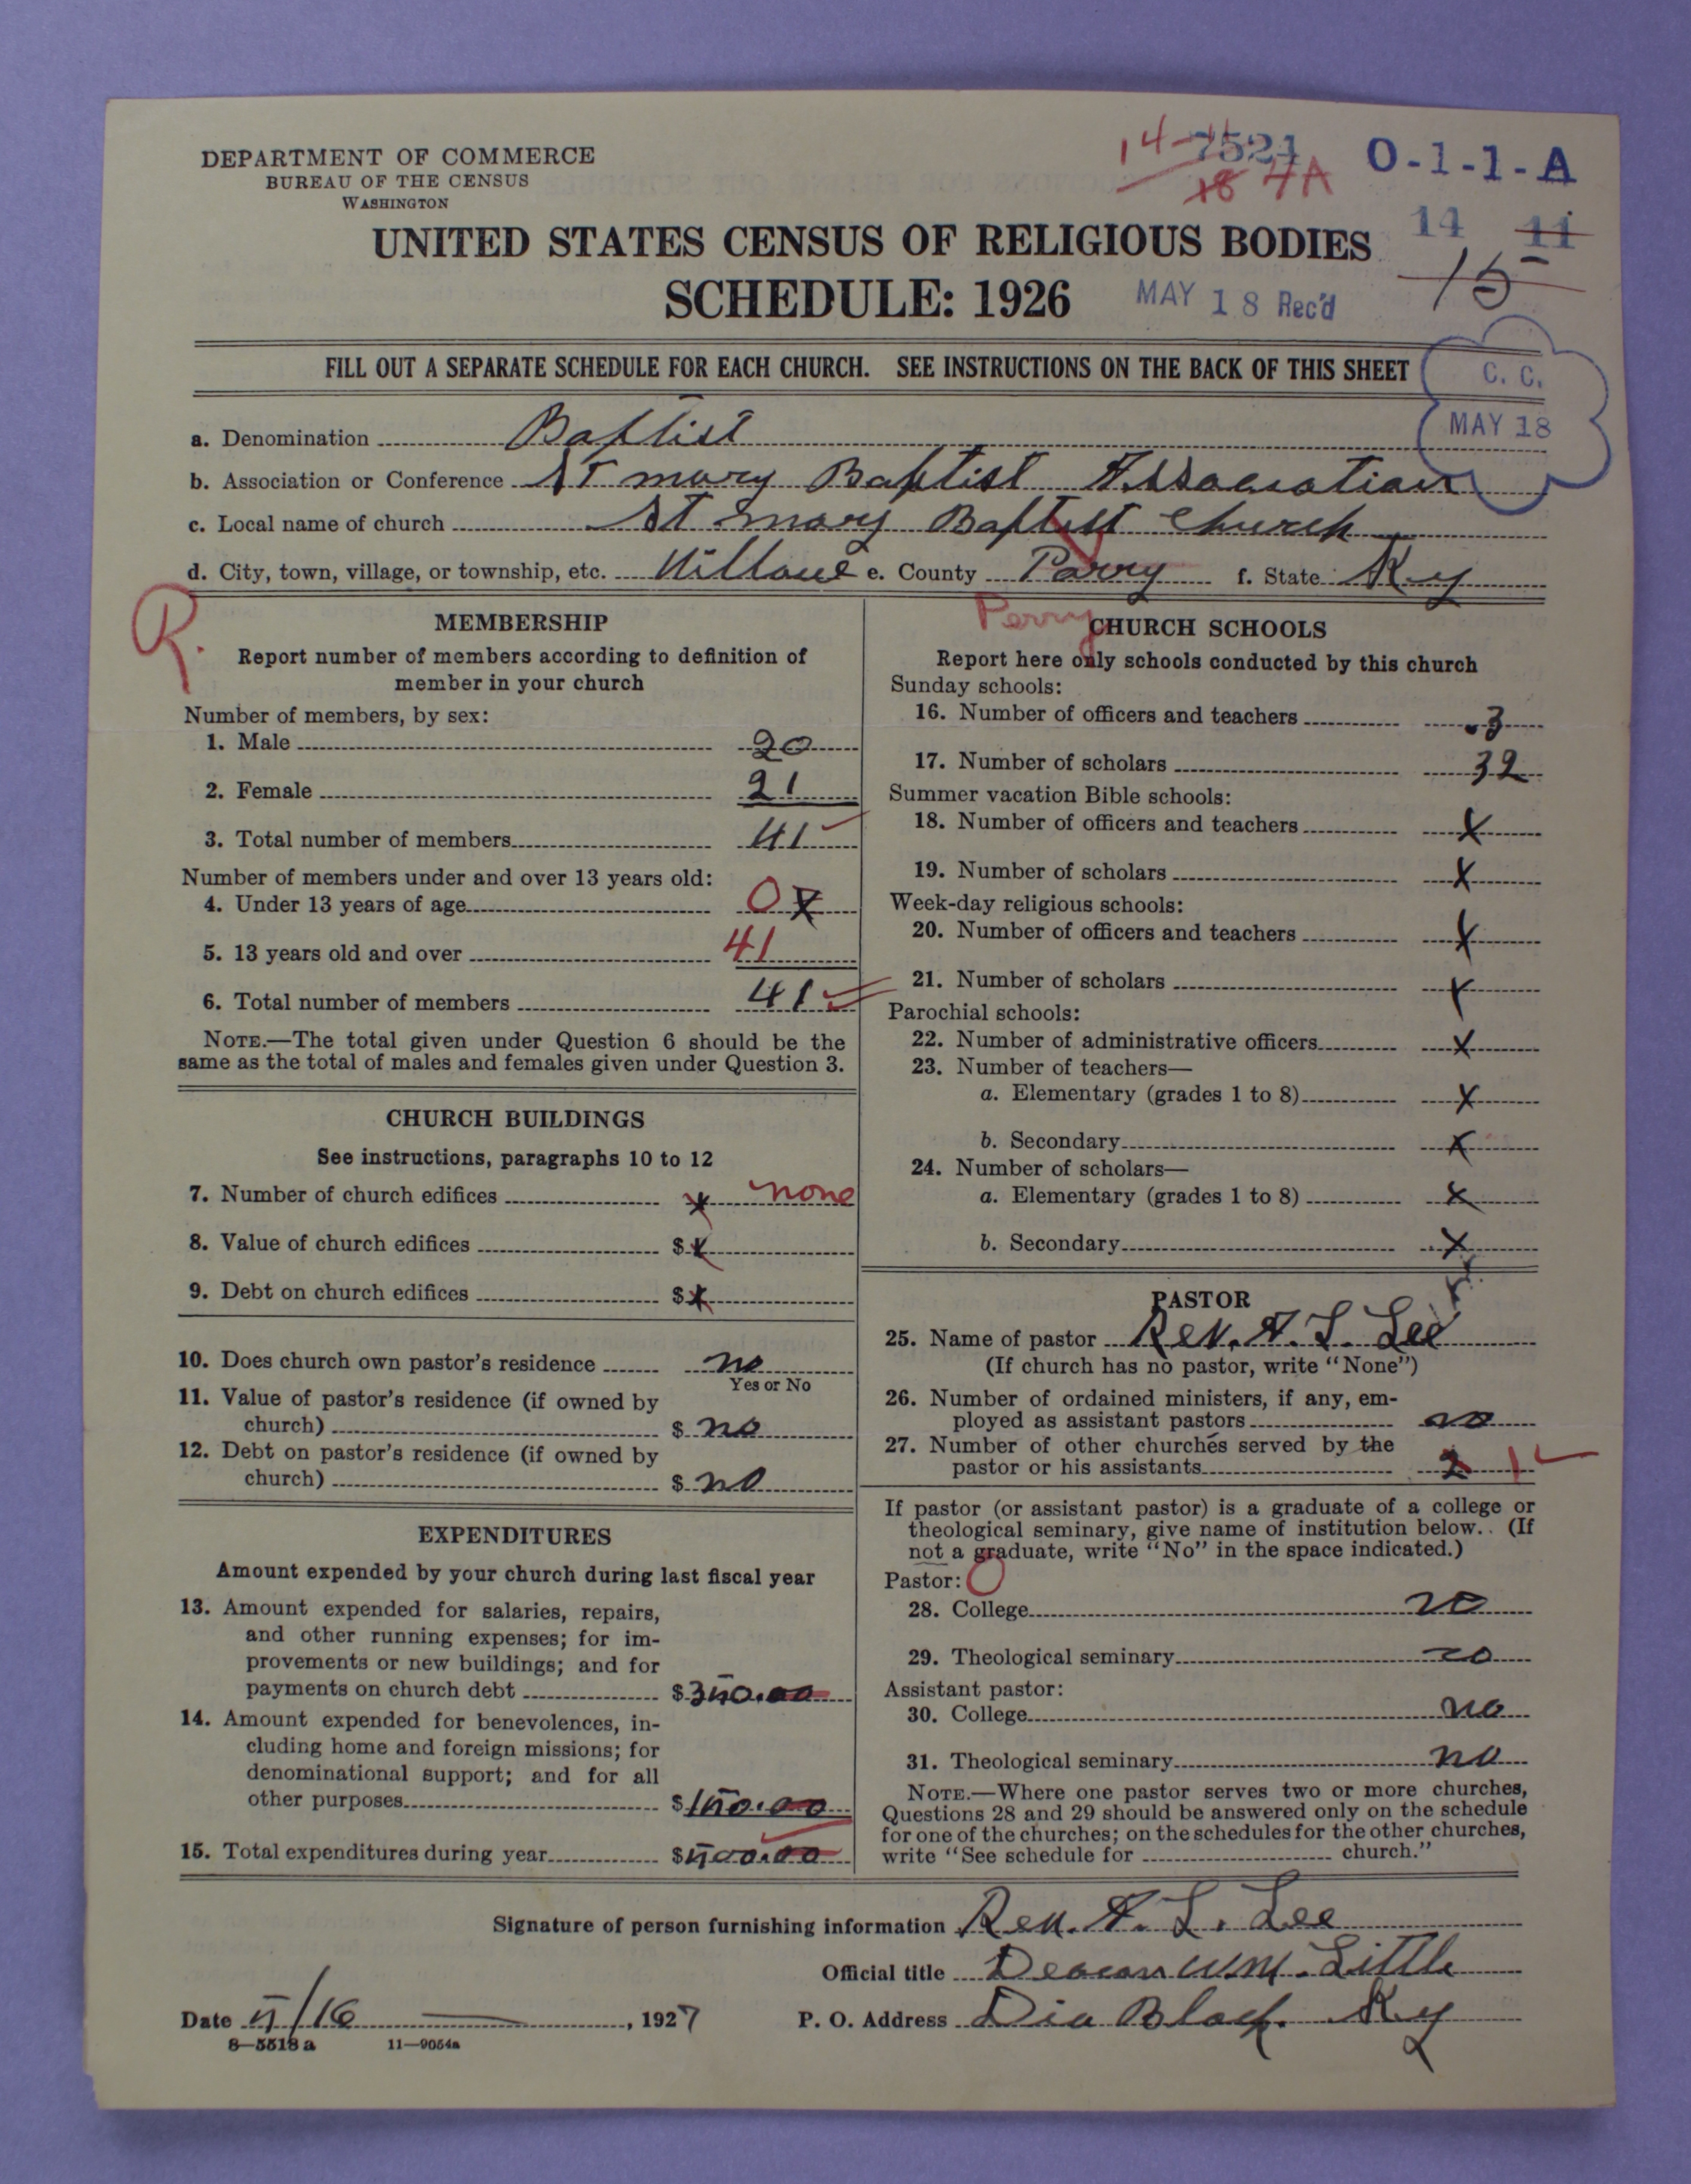 DEPARTMENT OF COMMERCE
BUREAU OF THE CENSUS
WASHINGTON
14-11
7521
18 7A
O-1-1-A
14 11
15
UNITED STATES CENSUS OF RELIGIOUS BODIES
SCHEDULE: 1926
MAY 18 Rec'd
FILL OUT A SEPARATE SCHEDULE FOR EACH CHURCH. SEE INSTRUCTIONS ON THE BACK OF THIS SHEET
C. C.
MAY 18
a. Denomination Baptist
b. Association or Conference St mary Baptist Association
c. Local name of church St mary Baptist church
d. City, town, village, or township, etc. e. County Parry f. State Ky
R.
Perry
MEMBERSHIP
Report number of members according to definition of
member in your church
Number of members, by sex:
1. Male 20
2. Female 21
3. Total number of members 41
Number of members under and over 13 years old:
4. Under 13 years of age 0 X
5. 13 years old and over 41
6. Total number of members 41
NOTE.—The total given under Question 6 should be the
same as the total of males and females given under Question 3.
CHURCH BUILDINGS
See instructions, paragraphs 10 to 12
7. Number of church edifices x none
8. Value of church edifices $ x
9. Debt on church edifices $ x
10. Does church own pastor's residence no
Yes or No
11. Value of pastor's residence (if owned by
church) $ no
12. Debt on pastor's residence (if owned by
church) $ no
EXPENDITURES
Amount expended by your church during last fiscal year
13. Amount expended for salaries, repairs,
and other running expenses; for im-
provements or new buildings; and for
payments on church debt $ 350.00
14. Amount expended for benevolences, in-
cluding home and foreign missions; for
denominational support; and for all
other purposes $ 150.00
15. Total expenditures during year $ 500.00
CHURCH SCHOOLS
Report here only schools conducted by this church
Sunday schools:
16. Number of officers and teachers 3
17. Number of scholars 32
Summer vacation Bible schools:
18. Number of officers and teachers X
19. Number of scholars X
Week-day religious schools:
20. Number of officers and teachers X
21. Number of scholars X
Parochial schools:
22. Number of administrative officers X
23. Number of teachers—
a. Elementary (grades 1 to 8) X
b. Secondary X
24. Number of scholars—
a. Elementary (grades 1 to 8) X
b. Secondary X
PASTOR
25. Name of pastor Rev. A. L. Lee
(If church has no pastor, write "None")
26. Number of ordained ministers, if any, em-
ployed as assistant pastors no
27. Number of other churches served by the
pastor or his assistants 2 1
If pastor (or assistant pastor) is a graduate of a college or
theological seminary, give name of institution below. (If
not a graduate, write "No" in the space indicated.)
Pastor: O
28. College no
29. Theological seminary no
Assistant pastor:
30. College no
31. Theological seminary no
NOTE.—Where one pastor serves two or more churches,
Questions 28 and 29 should be answered only on the schedule
for one of the churches; on the schedules for the other churches,
write "See schedule for church."
Signature of person furnishing information Rev. A. L. Lee
Official title Deacon Wm. Little
Date 5/16, 1927
P. O. Address Dia Block. Ky
8-5518 a 11-9054a